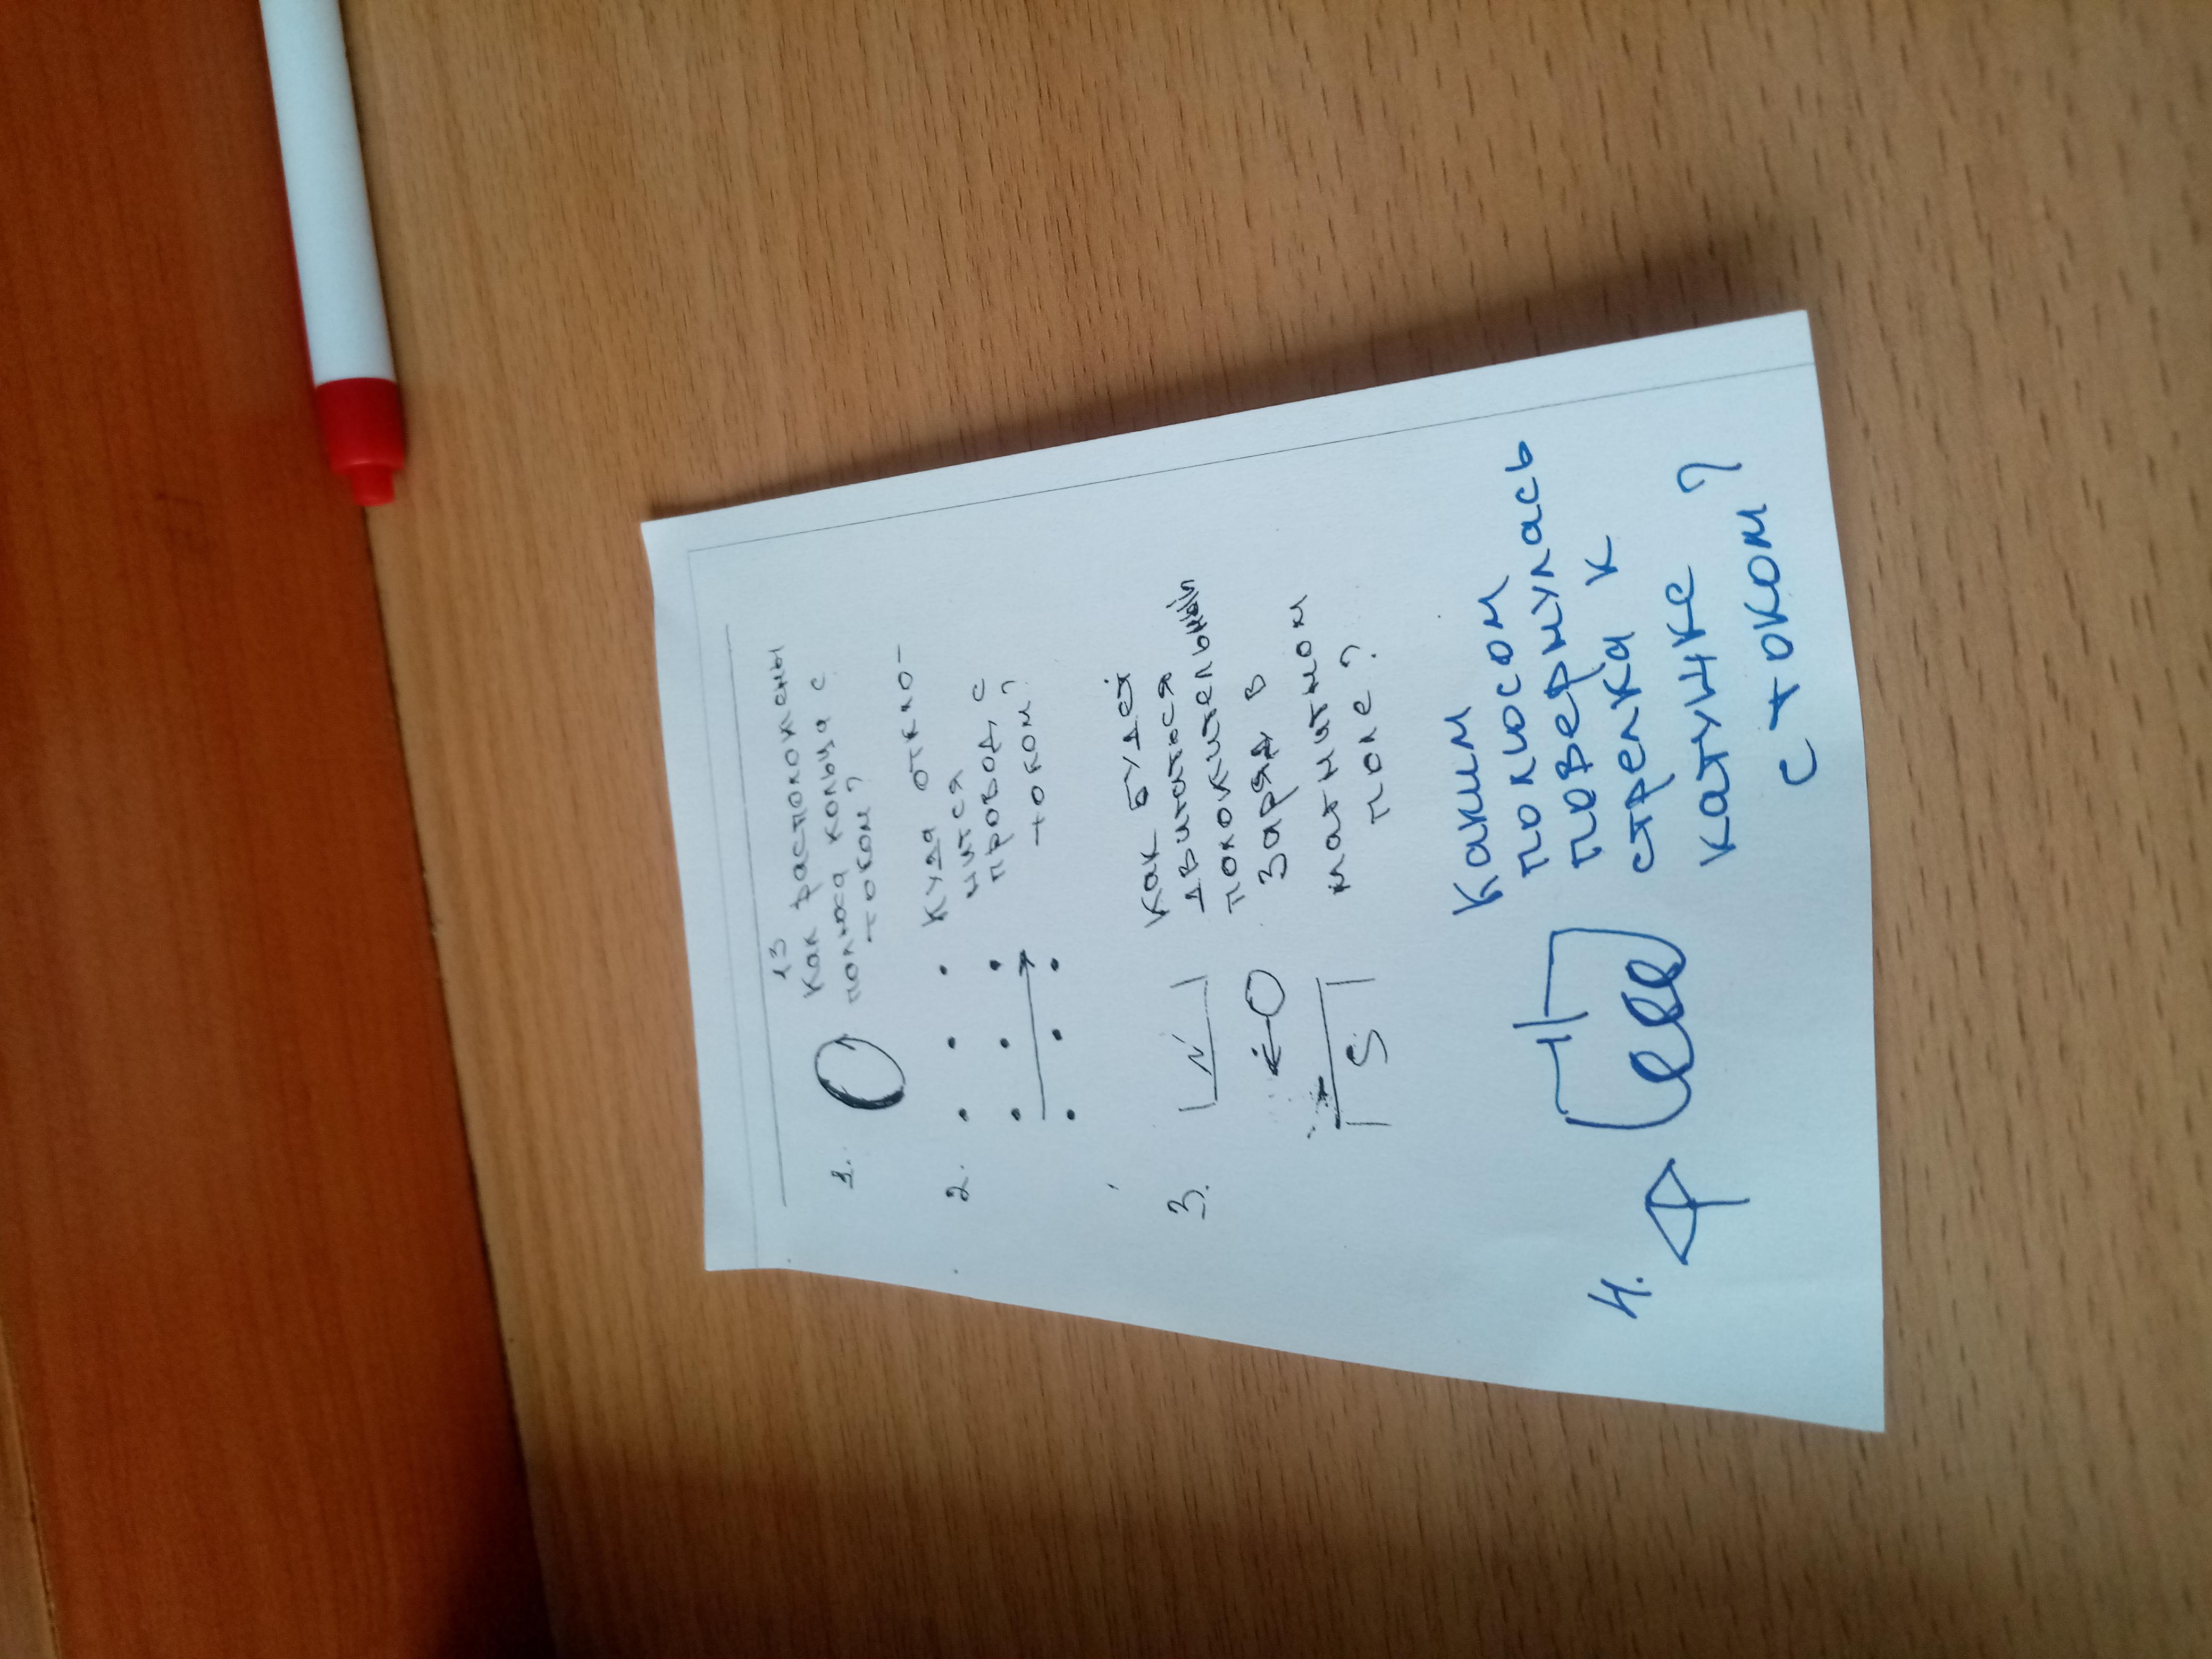 13
1. Как расположены
полюса кольца с
током?
2. Куда откло-
нится
провод с
током?
3. Как будет
двигаться
положительный
заряд в
магнитном
поле?
N
S
4. Каким
полюсом
повернулась
стрелка к
катушке
с током?